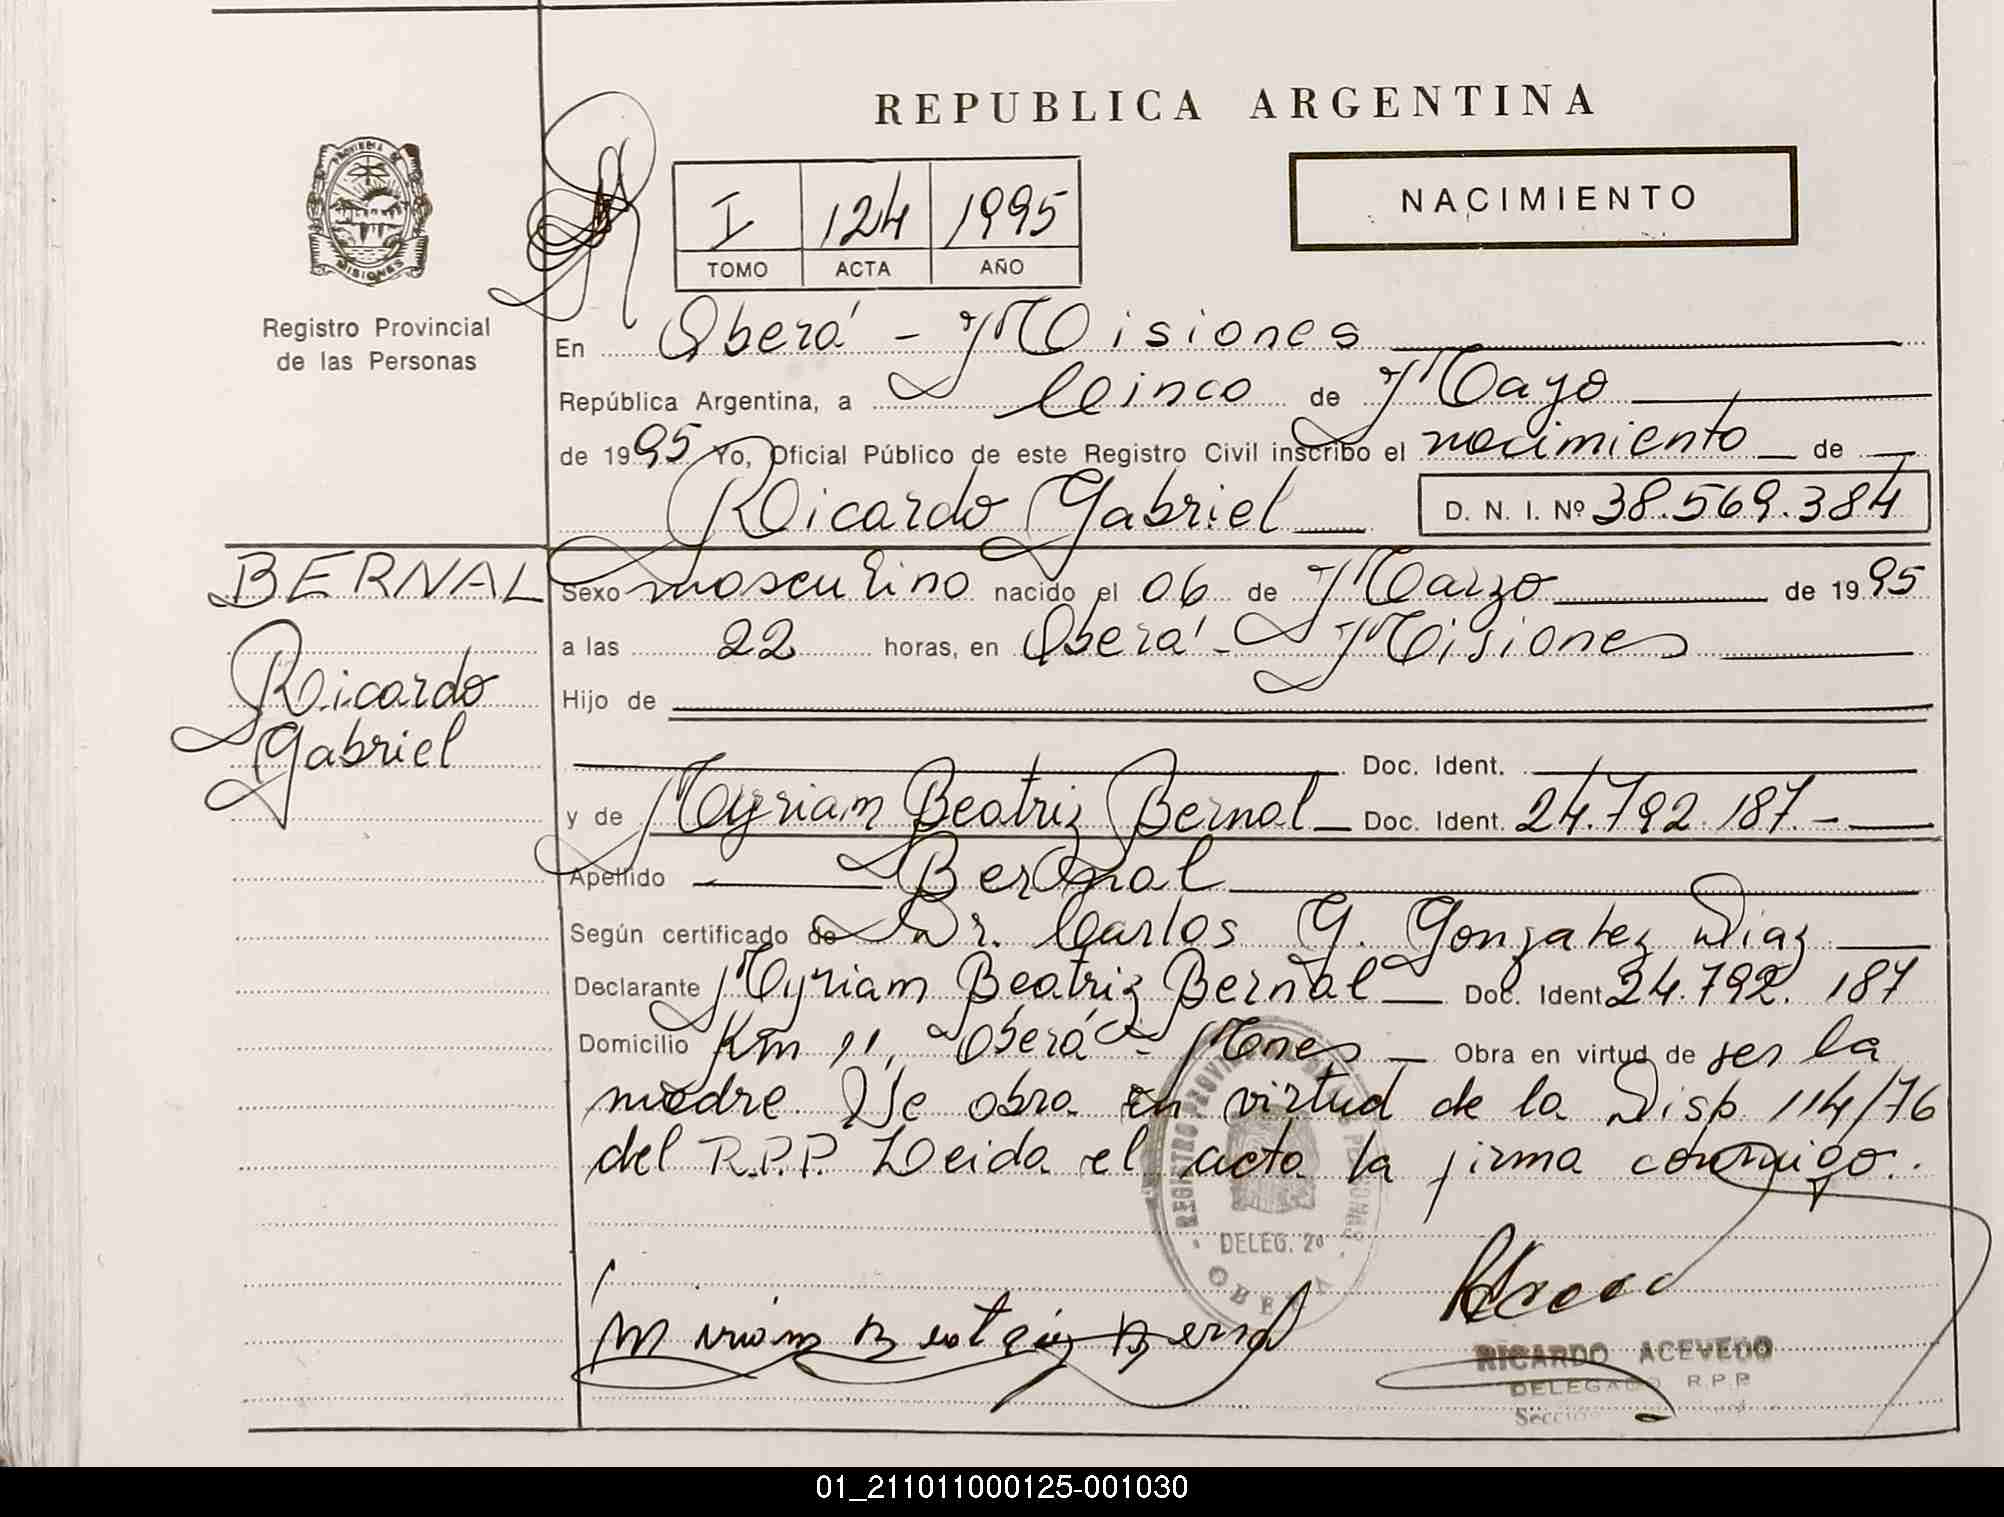 REPUBLICA ARGENTINA
PROVINCIA DE
MISIONES
Registro Provincial
de las Personas
I 124 1995
TOMO ACTA AÑO
NACIMIENTO
En Oberá - Misiones
República Argentina, a Cinco de Mayo
de 1995 Yo, Oficial Público de este Registro Civil inscribo el nacimiento de
Ricardo Gabriel D. N. I. Nº 38.569.384
BERNAL
Ricardo
Gabriel
Sexo masculino nacido el 06 de Marzo de 1995
a las 22 horas, en Oberá - Misiones
Hijo de
Doc. Ident.
y de Myriam Beatriz Bernal Doc. Ident. 24.792.187.-
Apellido Bernal
Según certificado de Dr. Carlos G. Gonzalez Diaz
Declarante Myriam Beatriz Bernal Doc. Ident 24.792.187
Domicilio Km 11, Oberá - Mnes Obra en virtud de ser la
madre. Se obra en virtud de la Disp 114/76
del R.P.P. Leida el acta la firma conmigo.
REGISTRO PROVINCIAL DE LAS PERSONAS
DELEG. 2ª
OBERA
Miriam Beatriz Bernal
RICARDO ACEVEDO
DELEGADO R.P.P.
01_211011000125-001030